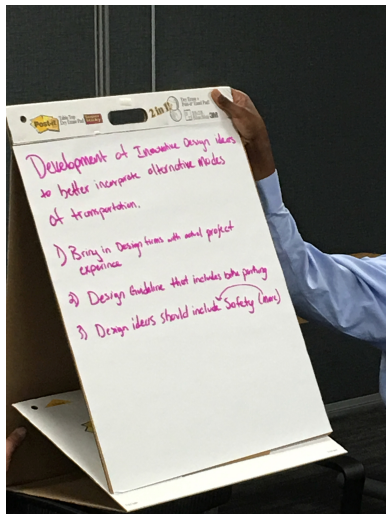 Post-it
2 in 1
3M
Development of Innovative Design ideas
to better incorporate alternative modes
of transportation.
1) Bring in Design firms with actual project
experience
2) Design Guideline that includes
3) Design ideas should include Safety (more)